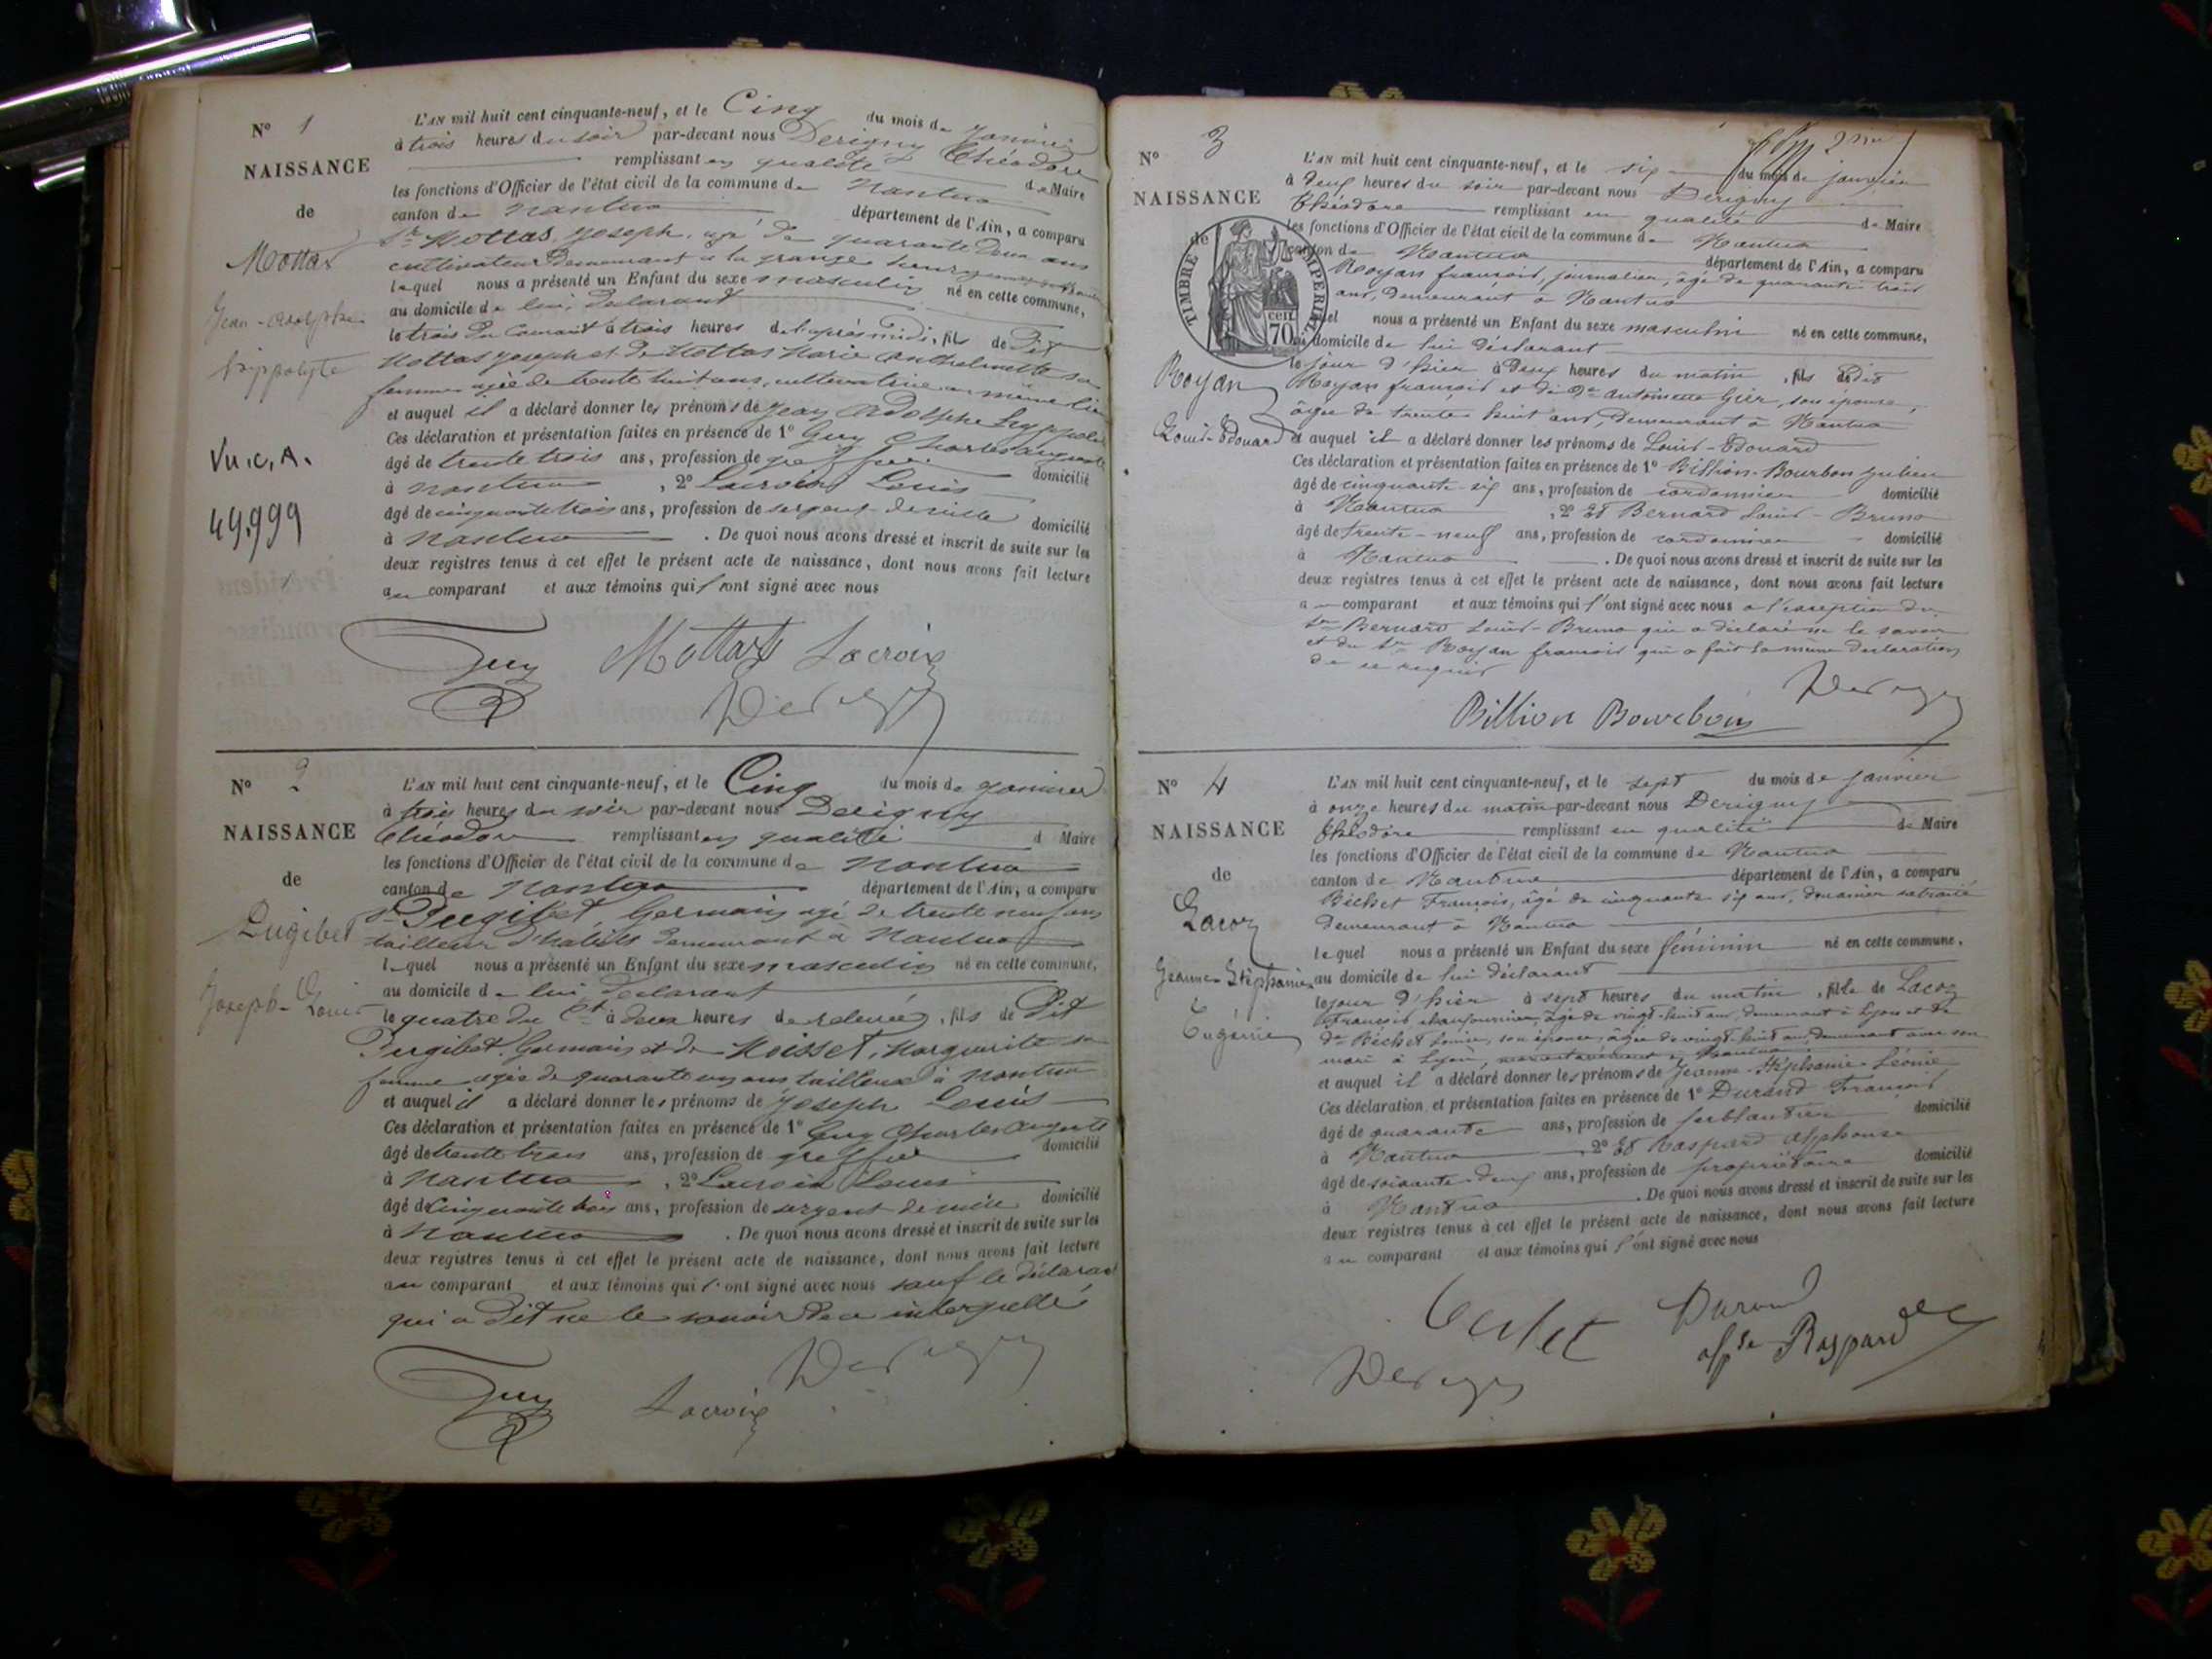 N° 1
NAISSANCE
de
Mottas
Jean-Adolphe
hippolyte
Vu. C. A.
49.999
L'AN mil huit cent cinquante-neuf, et le Cinq du mois de Janvier
à trois heures du soir par-devant nous Derigny Théodore
remplissant en qualité de Maire
les fonctions d'Officier de l'état civil de la commune de Nantua
canton de Nantua département de l'Ain, a comparu
Sr Mottas Joseph, agé de quarante deux ans
cultivateur demeurant à la grange
lequel nous a présenté un Enfant du sexe masculin né en cette commune,
au domicile de lui déclarant
le trois du Courant à trois heures de l'après midi, fils de Dit
Mottas Joseph et de Mottas Marie Anthelmette sa
femme agée de trente huit ans, cultivatrice au même lieu
et auquel il a déclaré donner les prénoms de Jean Adolphe Hyppolite
Ces déclaration et présentation faites en présence de 1° Guy Charles Auguste
âgé de trente trois ans, profession de greffier domicilié
à Nantua, 2° Lacroix Louis
âgé de cinquante trois ans, profession de sergent de ville domicilié
à Nantua. De quoi nous avons dressé et inscrit de suite sur les
deux registres tenus à cet effet le présent acte de naissance, dont nous avons fait lecture
au comparant et aux témoins qui l'ont signé avec nous
Guy Mottas Lacroix
Derigny
N° 2
NAISSANCE
de
Pugibet
Joseph-Louis
L'AN mil huit cent cinquante-neuf, et le Cinq du mois de Janvier
à trois heures du soir par-devant nous Derigny
Théodore remplissant en qualité d Maire
les fonctions d'Officier de l'état civil de la commune de Nantua
canton de Nantua département de l'Ain, a comparu
Sr Pugibet, Germain agé de trente neuf ans
tailleur d'habits demeurant à Nantua
lequel nous a présenté un Enfant du sexe masculin né en cette commune,
au domicile de lui déclarant
le quatre du Ct à deux heures de relevée, fils de Dit
Pugibet, Germain et de Moisset, Marguerite sa
femme agée de quarante un ans tailleuse à Nantua
et auquel il a déclaré donner les prénoms de Joseph Louis
Ces déclaration et présentation faites en présence de 1° Guy Charles Auguste
âgé de trente trois ans, profession de greffier domicilié
à Nantua, 2° Lacroix Louis
âgé de Cinquante trois ans, profession de sergent de ville domicilié
à Nantua. De quoi nous avons dressé et inscrit de suite sur les
deux registres tenus à cet effet le présent acte de naissance, dont nous avons fait lecture
au comparant et aux témoins qui l'ont signé avec nous sauf le déclarant
qui a dit ne le savoir de ce interpellé
Derigny
Guy Lacroix
N° 3
NAISSANCE
de
TIMBRE IMPERIAL
70 cen
Royan
Louis-Edouard
L'AN mil huit cent cinquante-neuf, et le six du mois de janvier
à deux heures du soir par-devant nous Derigny
Théodore remplissant en qualité de Maire
les fonctions d'Officier de l'état civil de la commune de Nantua
canton de Nantua département de l'Ain, a comparu
Royan françois, journalier, âgé de quarante-trois
ans, demeurant à Nantua
lequel nous a présenté un Enfant du sexe masculin né en cette commune,
au domicile de lui déclarant
le jour d'hier à deux heures du matin, fils de dit
Royan françois et de De Antoinette Gier, son épouse,
âgée de trente huit ans, demeurant à Nantua
et auquel il a déclaré donner les prénoms de Louis-Edouard
Ces déclaration et présentation faites en présence de 1° Billion-Bourbon Julien
âgé de cinquante-six ans, profession de cordonnier domicilié
à Nantua, 2° et Bernard Louis-Bruno
âgé de trente-neuf ans, profession de cordonnier domicilié
à Nantua. De quoi nous avons dressé et inscrit de suite sur les
deux registres tenus à cet effet le présent acte de naissance, dont nous avons fait lecture
au comparant et aux témoins qui l'ont signé avec nous a l'exception du
Sr Bernard Louis-Bruno qui a déclaré ne le savoir
et du Sr Royan françois qui a fait la même declaration
de ce requis
Derigny
Billion Bourbon
N° 4
NAISSANCE
de
Lacoz
Jeanne-Stéphanie
Eugénie
L'AN mil huit cent cinquante-neuf, et le sept du mois de janvier
à onze heures du matin par-devant nous Derigny
Théodore remplissant en qualité de Maire
les fonctions d'Officier de l'état civil de la commune de Nantua
canton de Nantua département de l'Ain, a comparu
Béchet François, âgé de cinquante six ans, douanier retraité
demeurant à Nantua
lequel nous a présenté un Enfant du sexe féminin né en cette commune,
au domicile de lui déclarant
le jour d'hier à sept heures du matin, fille de Lacoz
François, chaufournier, âgé de vingt-huit ans, demeurant à Lyon et de
De Béchet Louise, son épouse, âgée de vingt-huit ans, demeurant avec son
mari à Lyon,
et auquel il a déclaré donner les prénoms de Jeanne-Stéphanie-Léonie
Ces déclaration et présentation faites en présence de 1° Durand François
âgé de quarante ans, profession de ferblantier domicilié
à Nantua, 2° et Raspard Alphonse
âgé de soixante-deux ans, profession de propriétaire domicilié
à Nantua. De quoi nous avons dressé et inscrit de suite sur les
deux registres tenus à cet effet le présent acte de naissance, dont nous avons fait lecture
au comparant et aux témoins qui l'ont signé avec nous
Durand
Alpse Raspard
Derigny